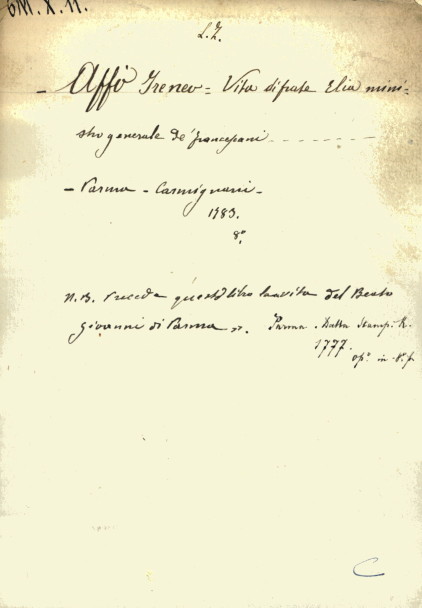 6M. X. 11.
L.Z.
- Affò Ireneo = Vita di frate Elia mini=
stro generale de' francescani - - - - - -
- Parma - Carmignani -
1783.
8°.
N.B. Precede questo libro la vita del Beato
Giovanni di Parma =. Parma. Dalla Stamp. R.
1777.
op. in 8°. p.
C